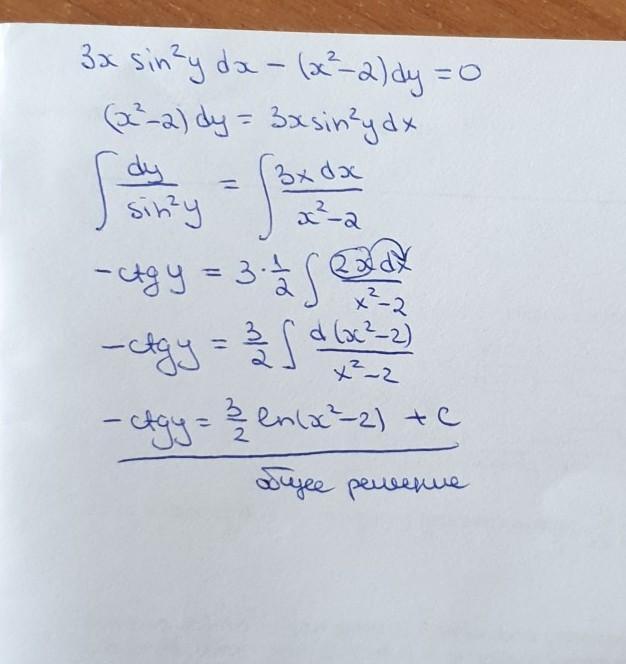 3x sin²y dx − (x²−2)dy = 0
(x²−2)dy = 3x sin²y dx
∫ dy/sin²y = ∫ 3x dx/(x²−2)
−ctg y = 3·1/2 ∫ 2x dx/(x²−2)
−ctg y = 3/2 ∫ d(x²−2)/(x²−2)
−ctg y = 3/2 ln(x²−2) + C
общее решение